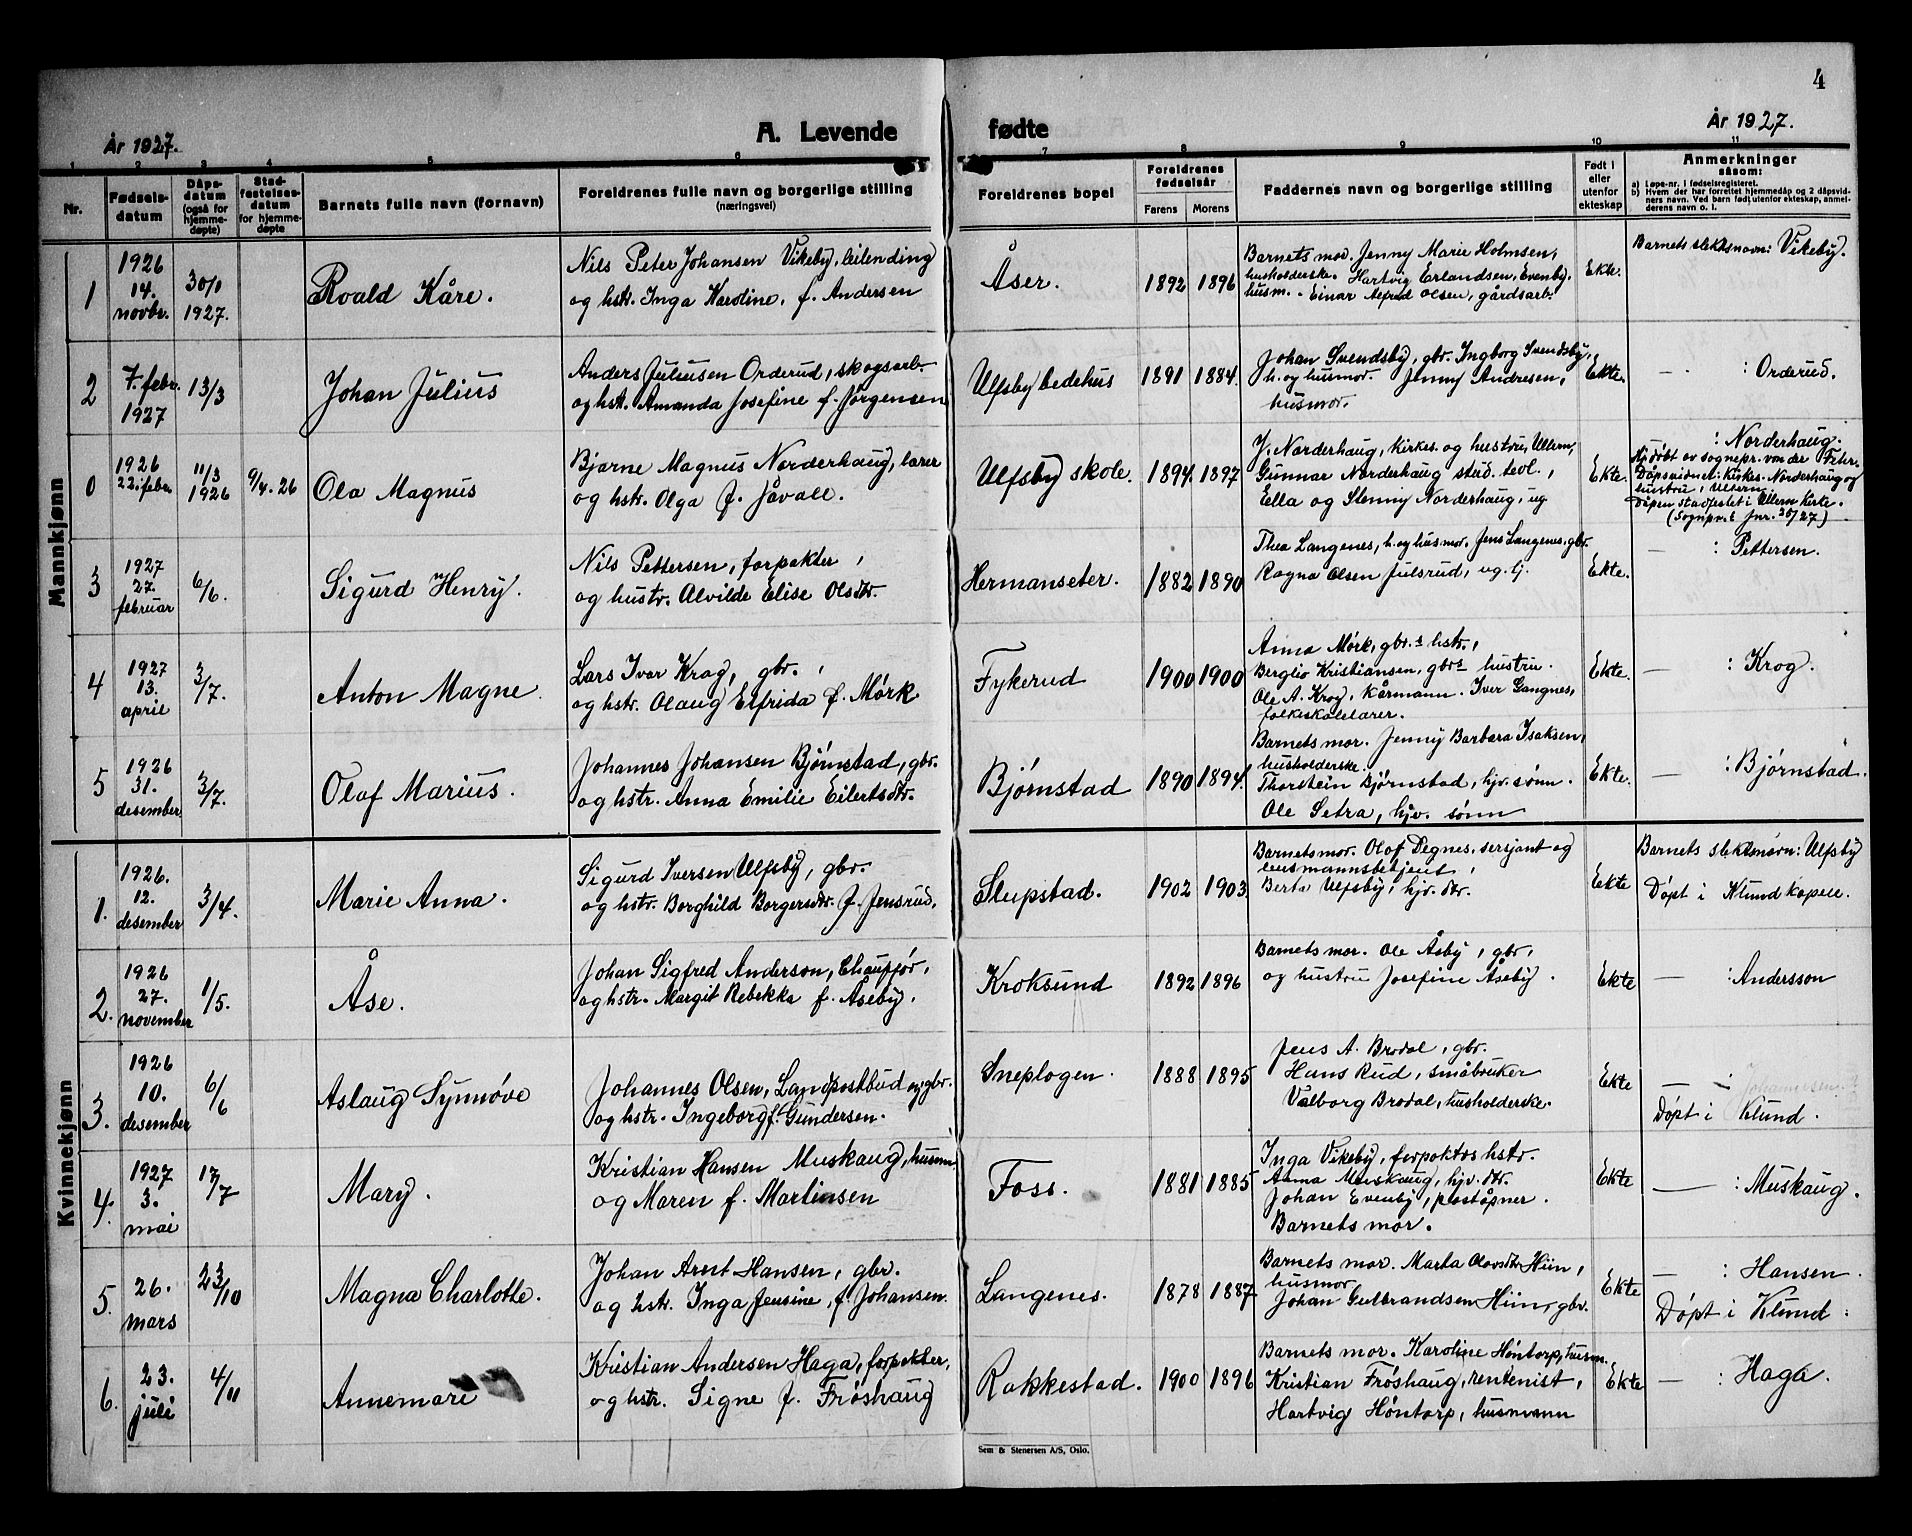 4
År 1927.
A. Levende fødte
År 1927.
1 2 3 4 5 6 7 8 9 10 11
Nr.
Fødselsdatum
Dåpsdatum (også for hjemmedøpte)
Stadfestelsesdatum for hjemmedøpte
Barnets fulle navn (fornavn)
Foreldrenes fulle navn og borgerlige stilling (næringsvei)
Foreldrenes bopel
Foreldrenes fødselsår
Farens Morens
Faddernes navn og borgerlige stilling
Født i eller utenfor ekteskap
Anmerkninger såsom:
a) Løpe-nr. i fødselsregisteret.
b) Hvem der har forrettet hjemmedåp og 2 dåpsvidners navn. Ved barn født utenfor ekteskap, anmelderens navn o. l.
Mannkjønn
1
1926
14.
novbr.
30/1
1927.
Roald Kåre.
Nils Peter Johansen Vikeby, leilending
og hstr. Inga Karoline, f. Andersen
Åser.
1892 1896
Barnets mor. Jenny Marie Holmsen,
husholderske. Hartvig Erlandsen, Evenby,
husm. - Einar Alfred Olsen, gårdsarb.
Ekte.
Barnets slektsnavn: Vikeby.
2
7. febr.
1927
13/3
Johan Julius
Anders Juliusen Orderud, skogsarb.
og hstr. Amanda Josefine f. Jørgensen
Ulfsby bedehus
1891 1884.
Johan Svendsby, gbr. Ingborg Svendsby,
h. og husmor. Jenny Andresen,
husmor.
Ekte.
— : Orderud.
0
1926
22. febr.
11/3
1926
9/4. 26
Ola Magnus
Bjarne Magnus Norderhaug, lærer
og hstr. Olga f. Jåvall.
Ulfsby skole.
1894. 1897
J. Norderhaug, kirkes. og hustru, Ullern,
Gunnar Norderhaug stud. teol.,
Ella og Slenny Norderhaug, ug
Ekte.
: Norderhaug.
Hj.døbt av sognepr. von der Fehr.
Dåpsvidner: Kirkes. Norderhaug og
hustru, Ullern.
Dåpen stadfestet i Ullern kirke.
(Sognpr.s Jnr. 25/27)
3
1927
27.
februar
6/6.
Sigurd Henry.
Nils Pettersen, forpakter,
og hustr. Alvilde Elise Olsdtr.
Hermanseter.
1882 1890
Thea Langenes, h. og husmor. Jens Langenes, gbr.
Ragna Olsen Julsrud, ug. tj.
Ekte.
— : Pettersen.
4
1927
13.
april
3/7.
Anton Magne.
Lars Iver Krog, gbr.,
og hstr. Olaug Elfrida f. Mørk
Fykerud
1900 1900
Anna Mørk, gbr.s hstr.,
Bergliot Kristiansen, gbrs hustru.
Ole A. Krog, kårmann. Iver Langnes,
folkeskolelærer.
Ekte.
— : Krog.
5
1926
31.
desember
3/7.
Olaf Marius.
Johannes Johansen Bjørnstad, gbr.
og hstr. Anna Emilie Eilertsdtr.
Bjørnstad
1890 1894.
Barnets mor. Jenny Barbara Isaksen,
husholderske.
Thorstein Bjørnstad, hjv. sønn.
Ole Setra, hjv. sønn
Ekte.
— : Bjørnstad.
Kvinnekjønn
1.
1926.
12.
desember
3/4.
Marie Anna.
Sigurd Iversen Ulfsby, gbr.
og hstr. Borghild Borgersdtr. f. Jensrud.
Slupstad.
1902 1903.
Barnets mor. Olaf Degnes, sersjant og
lensmannsbetjent,
Berta Ulfsby, hjv. dtr.
Ekte
Barnets slektsnavn: Ulfsby
Døpt i Klund kapell.
2.
1926
27.
november
1/5.
Åse.
Johan Sigfred Anderson, Chauffør,
og hstr. Margit Rebekka f. Åseby.
Kroksund
1892 1896
Barnets mor. Ole Åsby, gbr,
og hustru Josefine Åseby.
Ekte
— : Andersson
3.
1926
10.
desember
6/6
Aslaug Synnøve
Johannes Olsen, Landpostbud og gbr.
og hstr. Ingeborg f. Gundersen.
Sneplogen.
1888 1895
Jens A. Brodal, gbr.
Hans Rud, småbruker
Valborg Brodal, husholderske.
Ekte
— : Johannesen
Døpt i Klund.
4.
1927
3.
mai
17/7
Mary.
Kristian Hansen Muskaug, husm.
og Maren f. Martinsen
Foss.
1881 1885
Inga Vikeby, forpaktes hstr.
Anna Muskaug, hjv. dtr.
Johan Evenby, poståpner.
Barnets mor.
Ekte
— : Muskaug.
5.
26.
mars
23/10
Magna Charlotte.
Johan Arnt Hansen, gbr.
og hstr. Inga Jensine, f. Johansen.
Langenes.
1878 1887
Barnets mor. Marta Olavsdtr Hiin,
husmor
Johan Gulbrandsen Hiin, gbr.
Ekte
— : Hansen.
Døpt i Klund:
6.
23.
juli
4/11
Annemari
Kristian Andersen Haga, forpakter,
og hstr. Signe f. Frøshaug
Rakkestad.
1900 1896
Barnets mor. Karoline Høntorp, husm.
Kristian Frøshaug, rentenist,
Hartvig Høntorp, husmann
Ekte
— : Haga.
Sem & Stenersen A/S, Oslo.